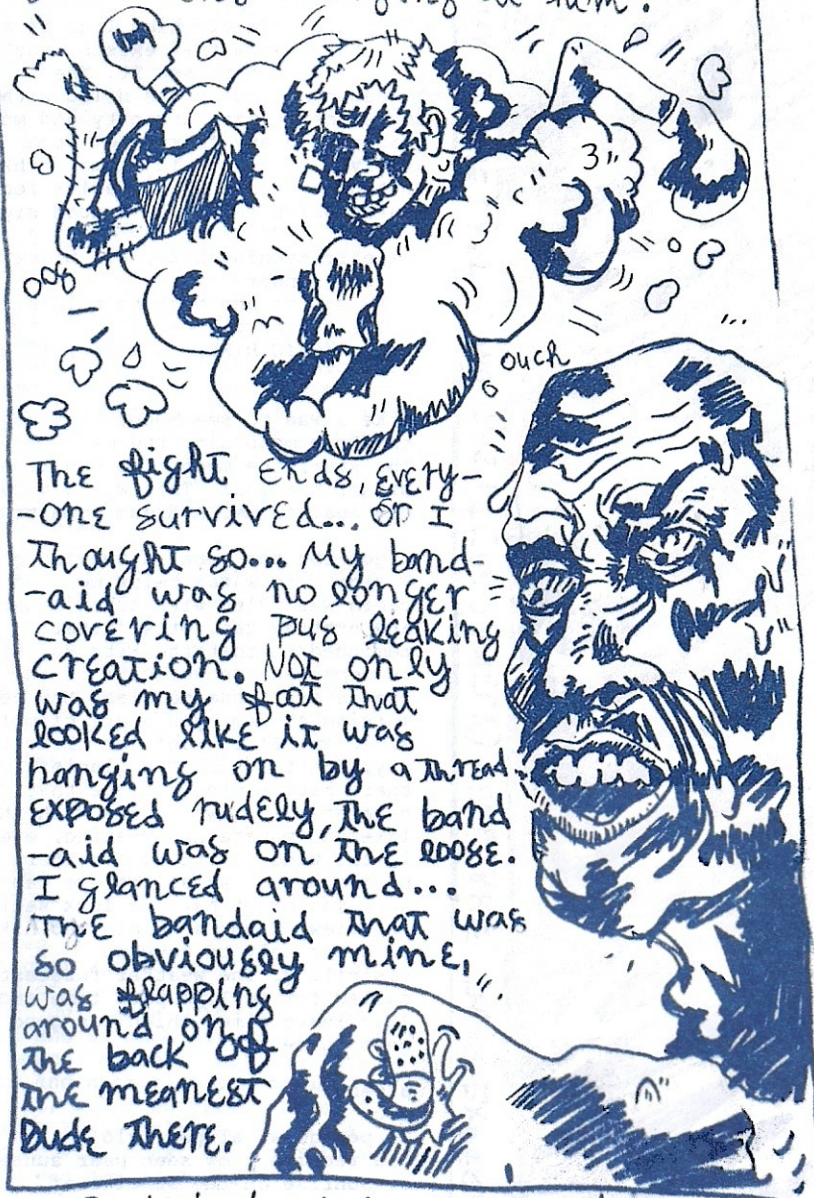 him.
OUCH
The fight ends, every-
-one survived... or I
thought so... My band-
-aid was no longer
covering pus leaking
creation. Not only
was my foot that
looked like it was
hanging on by a thread
exposed rudely, the band
-aid was on the loose.
I glanced around...
The bandaid that was
so obviously mine,
was flapping
around on
the back of
the meanest
Dude there.